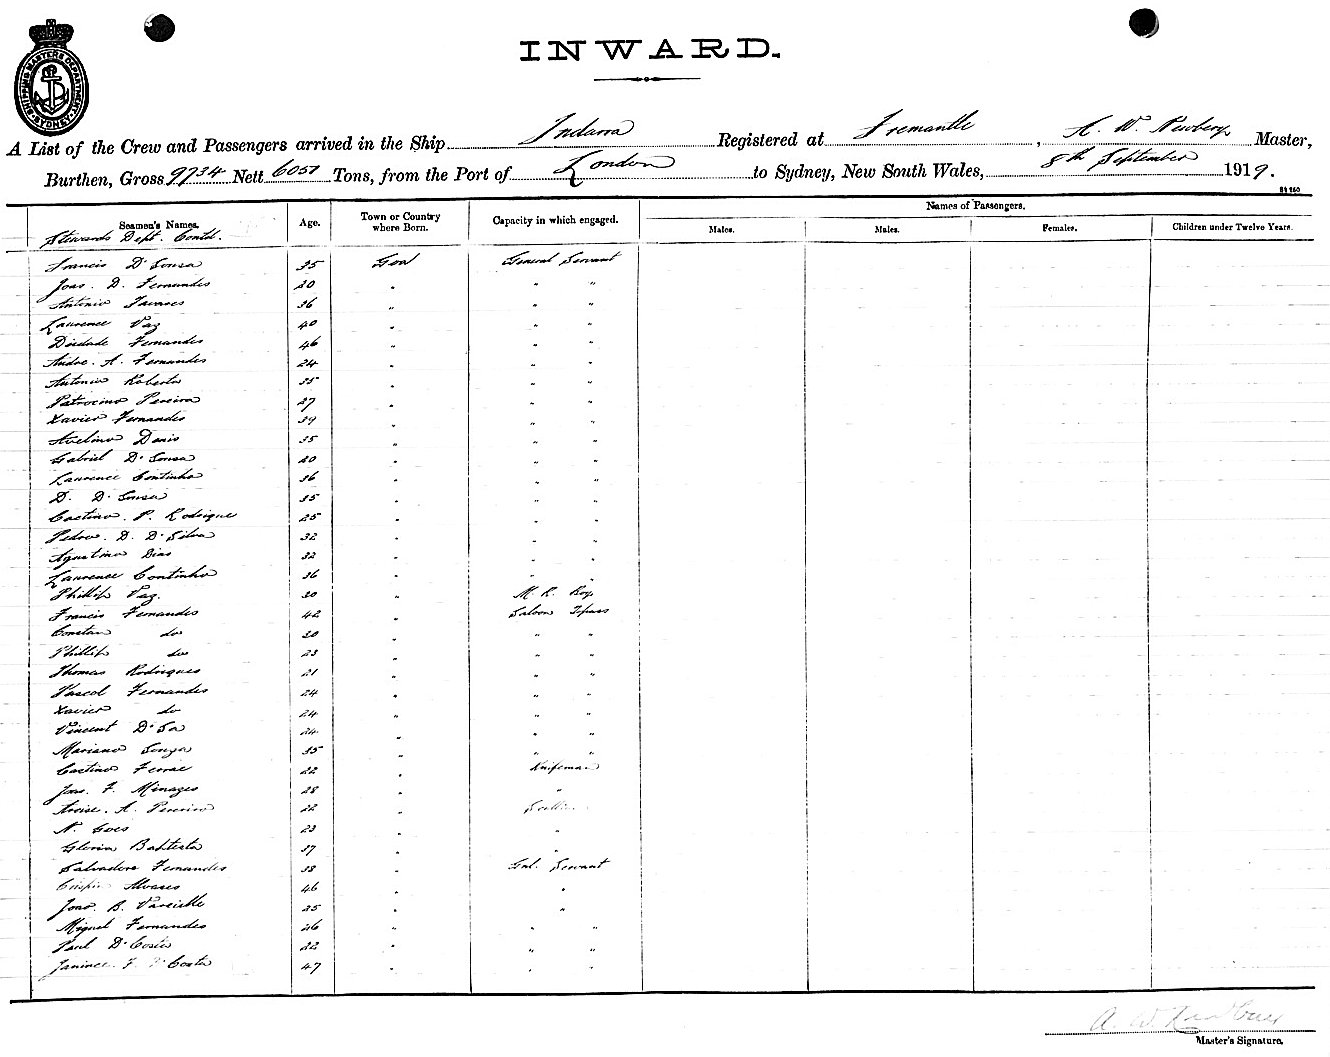 SHIPPING MASTERS DEPARTMENT SYDNEY
INWARD.
A List of the Crew and Passengers arrived in the Ship Indarra Registered at Fremantle, A. W. Newbery Master,
Burthen, Gross 9734 Nett 6057 Tons, from the Port of London to Sydney, New South Wales, 8th September 1919.
Seamen's Names. Age. Town or Country where Born. Capacity in which engaged. Names of Passengers.
Males. Males. Females. Children under Twelve Years.
Stewards Dept. Contd.
Francis D'Souza 35 Goa General Servant
Joao. D. Fernandes 20 " " "
Antonio Tavares 36 " " "
Laurence Vaz 40 " " "
Fernandes 46 " " "
Andre. A. Fernandes 24 " " "
Antonio Roberto 35 " " "
Patrocino Pereira 27 " " "
Xavier Fernandes 39 " " "
Avelino Denis 35 " " "
Gabriel D'Souza 20 " " "
Laurence Coutinho 36 " " "
D. D'Souza 35 " " "
Caetino. P. Rodrique 25 " " "
Pedro. D. D'Silva 32 " " "
Agustino Dias 32 " " "
Laurence Coutinho 36 " " "
Phillip Vaz. 20 " M. R. Boy
Francis Fernandes 42 " Saloon Topass
Constan do 20 " " "
Phillip do 23 " " "
Thomas Rodrigues 21 " " "
Pascol Fernandes 24 " " "
Xavier do 24 " " "
Vincent D'Sa 24 " " "
Mariano Souza 35 " " "
Caetino 22 " Knifeman
Joao. F. Minazes 28 " "
A. Pereira 22 "
N. Goes 23 " "
Gloria Baptista 37 " "
Salvadore Fernandes 38 " Gnl. Servant
Crispin Alvares 46 " "
Joao. B. 25 " "
Miguel Fernandes 26 " " "
Paul D'Costa 22 " " "
F. D'Costa 47 " " "
A. W. Newbery
Master's Signature.